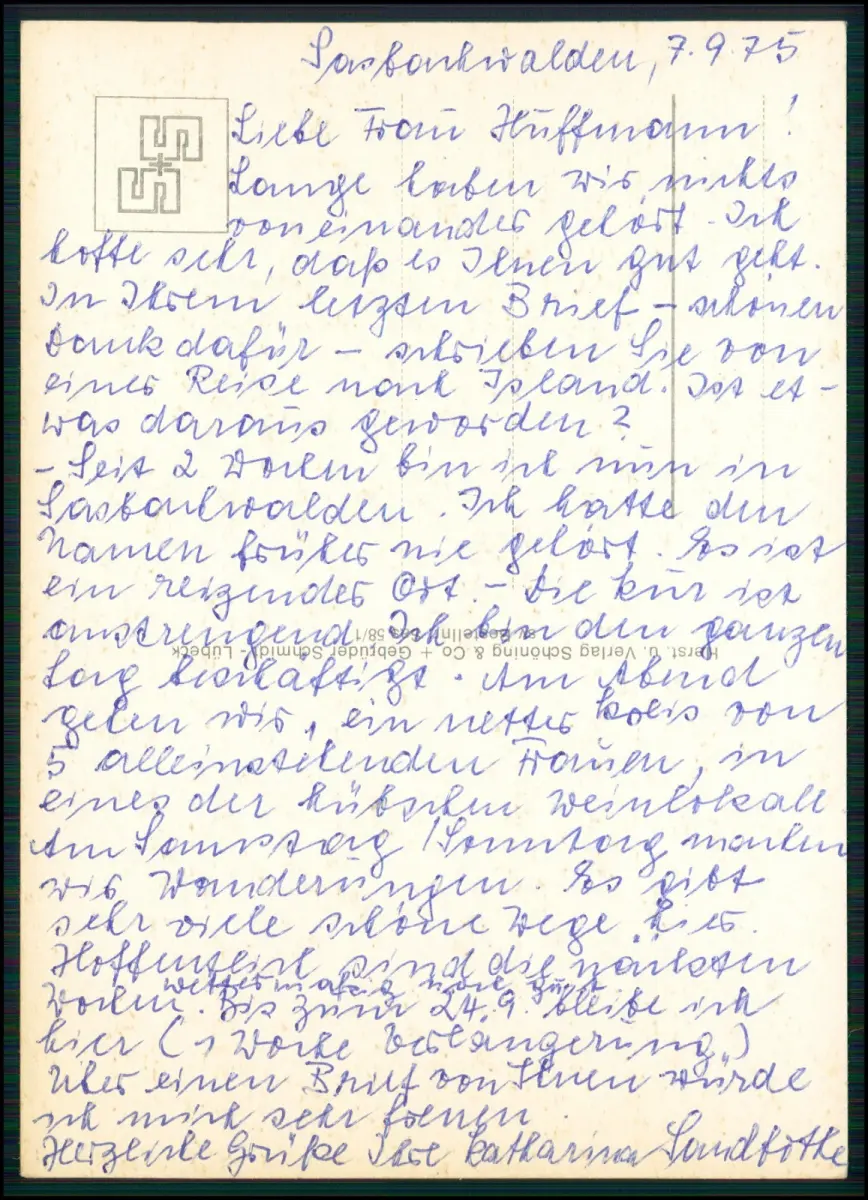 Sasbachwalden, 7.9.75
Liebe Frau Hüffmann!
Lange haben wir nichts
voneinander gehört. Ich
hoffe sehr, daß es Ihnen gut geht.
In Ihrem letzten Brief – schönen
Dank dafür – schrieben Sie von
einer Reise nach Island. Ist et-
was daraus geworden?
– Seit 2 Wochen bin ich nun in
Sasbachwalden. Ich hatte den
Namen früher nie gehört. Es ist
ein reizender Ort. – Die Kur ist
anstrengend. Ich bin den ganzen
Tag beschäftigt. Am Abend
gehen wir, ein netter Kreis von
5 alleinstehenden Frauen, in
eines der hübschen Weinlokale
Am Samstag/Sonntag machen
wir Wanderungen. Es gibt
sehr viele schöne Wege hier.
Hoffentlich sind die nächsten
wettermäßig noch gut
Wochen. Bis zum 24.9. bleibe ich
hier (1 Woche Verlängerung)
Über einen Brief von Ihnen würde
ich mich sehr freuen.
Herzliche Grüße Ihre Katharina Sandbothe
Herst. u. Verlag Schöning & Co + Gebrüder Schmidt - Lübeck
Bestellnr. Sas 58/1